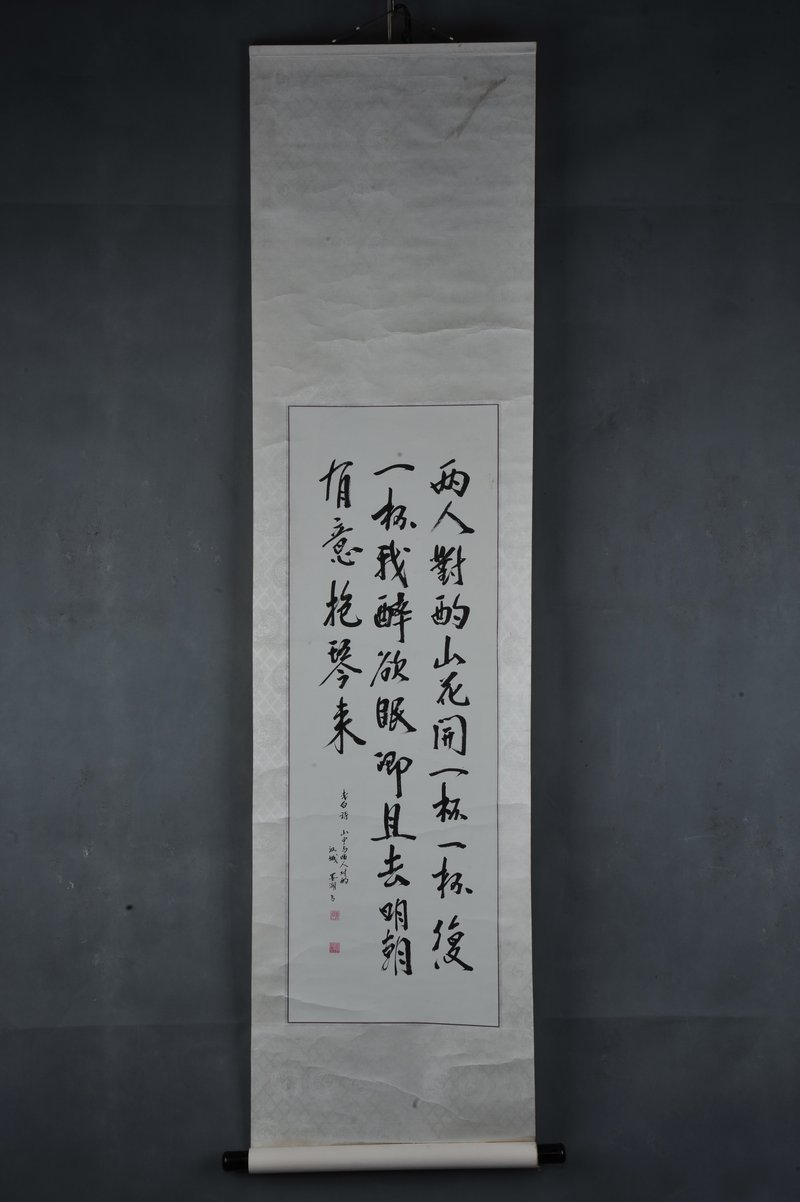 两人對酌山花開一杯一杯復
一杯我醉欲眠卿且去明朝
有意抱琴来
李白诗 山中与幽人对酌